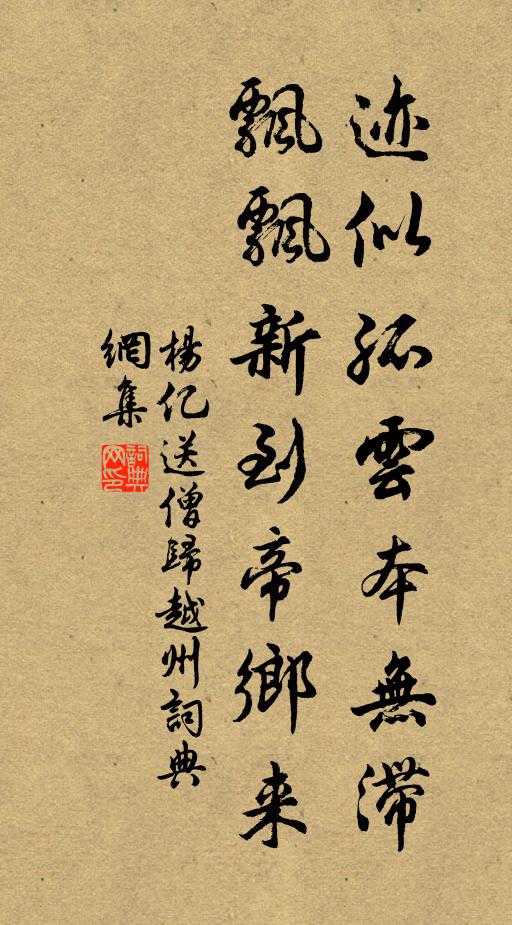 迹似孤雲本無滯
飄飄新到帝鄉来
楊亿送僧歸越州詞典
網集
詞典网印